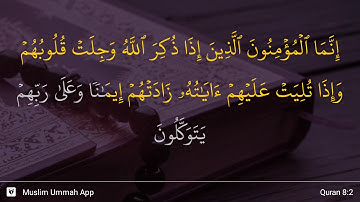 إِنَّمَا ٱلْمُؤْمِنُونَ ٱلَّذِينَ إِذَا ذُكِرَ ٱللَّهُ وَجِلَتْ قُلُوبُهُمْ
وَإِذَا تُلِيَتْ عَلَيْهِمْ ءَايَـٰتُهُۥ زَادَتْهُمْ إِيمَـٰنًا وَعَلَىٰ رَبِّهِمْ
يَتَوَكَّلُونَ
Muslim Ummah App
Quran 8:2